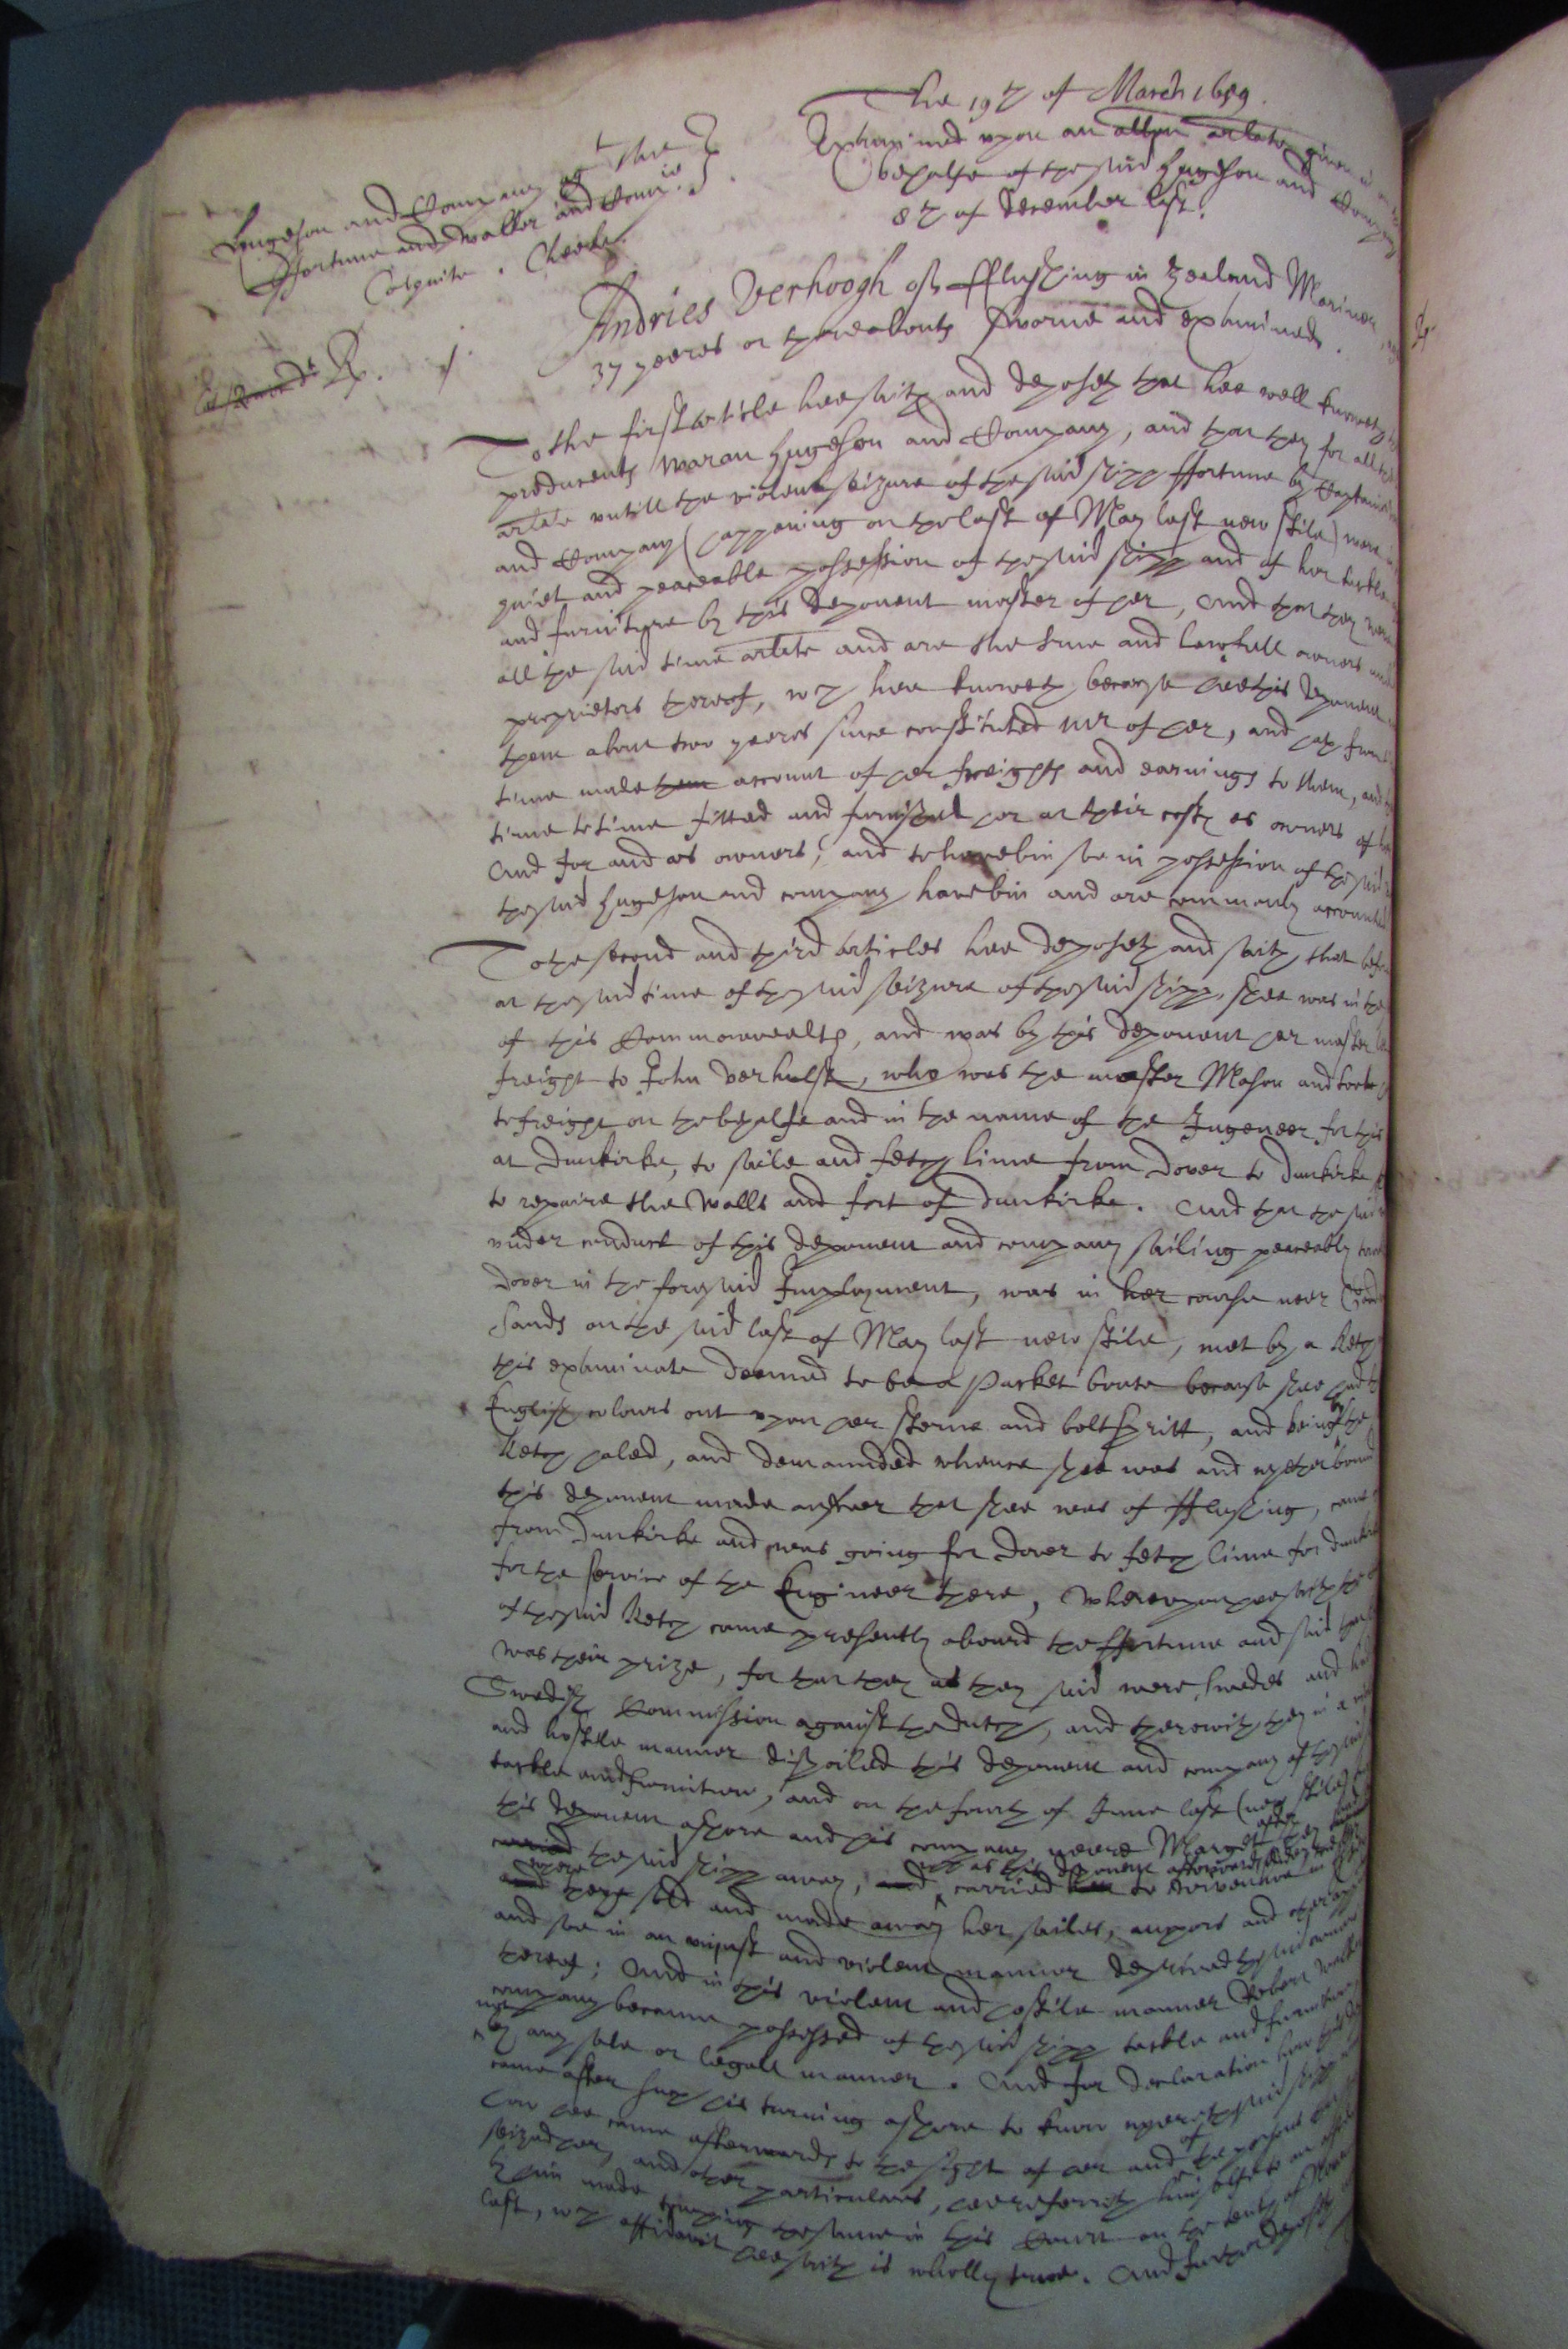 The 19th of March 1659.
Examined upon an allegation arlate given in on the
behalfe of the said Hugeson and Company
8th of December last.
Hugeson and Company of the
ffortune and Walker and Comp:ie
Colquite. Cheeke.
Rp. 1.
Andries Verhoogh of fflushing in Zeeland Mariner
37 yeeres or thereabouts sworne and examined.
To the first article hee saith and deposeth that hee well knoweth the
producents Maran Hugeson and Company, and that they for all the
arlate untill the violent seizure of the said shipp ffortune by Captaine
and Company (happening on the last of May last new stile) were in
quiet and peaceable possession of the said shipp and of her tackle
and furniture by this deponent master of her, And that they were
all the said time arlate and are the true and lawfull owners and
proprietors thereof, wch hee knoweth because hee this deponent
them about two yeeres since constituted mr of her, and hath from
time made them account of her freights and earnings to them, and
time to time fitted and furnished her at their costs as owners of her
And for and as owners, and to have bin soe in possession of the said
the said Hugeson and company have bin and are commonly accounted
To the second and third articles hee deposeth and saith that before
at the said time of the said seizure of the said shipp, shee was in the
of this Commonwealth, and was by this deponent her master let
freight to John Verhulst, who was the master Mason and tooke
to freight on the behalfe and in the name of the Ingeneer for this
at Dunkirke, to saile and fetch lime from Dover to Dunkirke
to repaire the Walls and fort of Dunkirke. And that the said
under conduct of this deponent and company sailing peaceably towards
Dover in the foresaid Imployment, was in her course neer
Sands on the said last of May last new stile, met by a Ketch
this examinate deemed to be a Packet boate because shee had
English colours out upon her sterne and boltspritt, and being by the
Ketch haled, and demaunded whence shee was and whether bound
this deponent made answer that shee was of fflushing, came
from Dunkirke and was going for Dover to fetch lime for Dunkirke
for the service of the Engineer there, Whereupon hee saith the
of the said Ketch came presently aboard the ffortune and said that
was their prize, for that they as they said were Swedes and had
Swedish Commission against the Dutch, and therewith they in a
and hostile manner dispoiled this deponent and company of the said
tackle and furniture, and on the fourth of June last (new stile)
this deponent ashore and his company neere Marget
carried the said shipp away, and wch as this deponent afterwards
carried her to
and there they sold and made away her sailes, anchors and other
and soe in an unjust and violent manner deprived the said owners
thereof; And in this violent and hostile manner Robert Walker
company became possessed of the said shipp tackle and furniture
not by any sale or legall manner. And for declaration how this
came after such his turning ashore to know where the said shipp
how hee came afterwards to the sight of her and of the persons that
seized her, and other particulars, hee referreth himselfe to an
by him made touching the same in this Court on the tenth of
last, wch affidavit hee saith is wholly true. And further deposeth